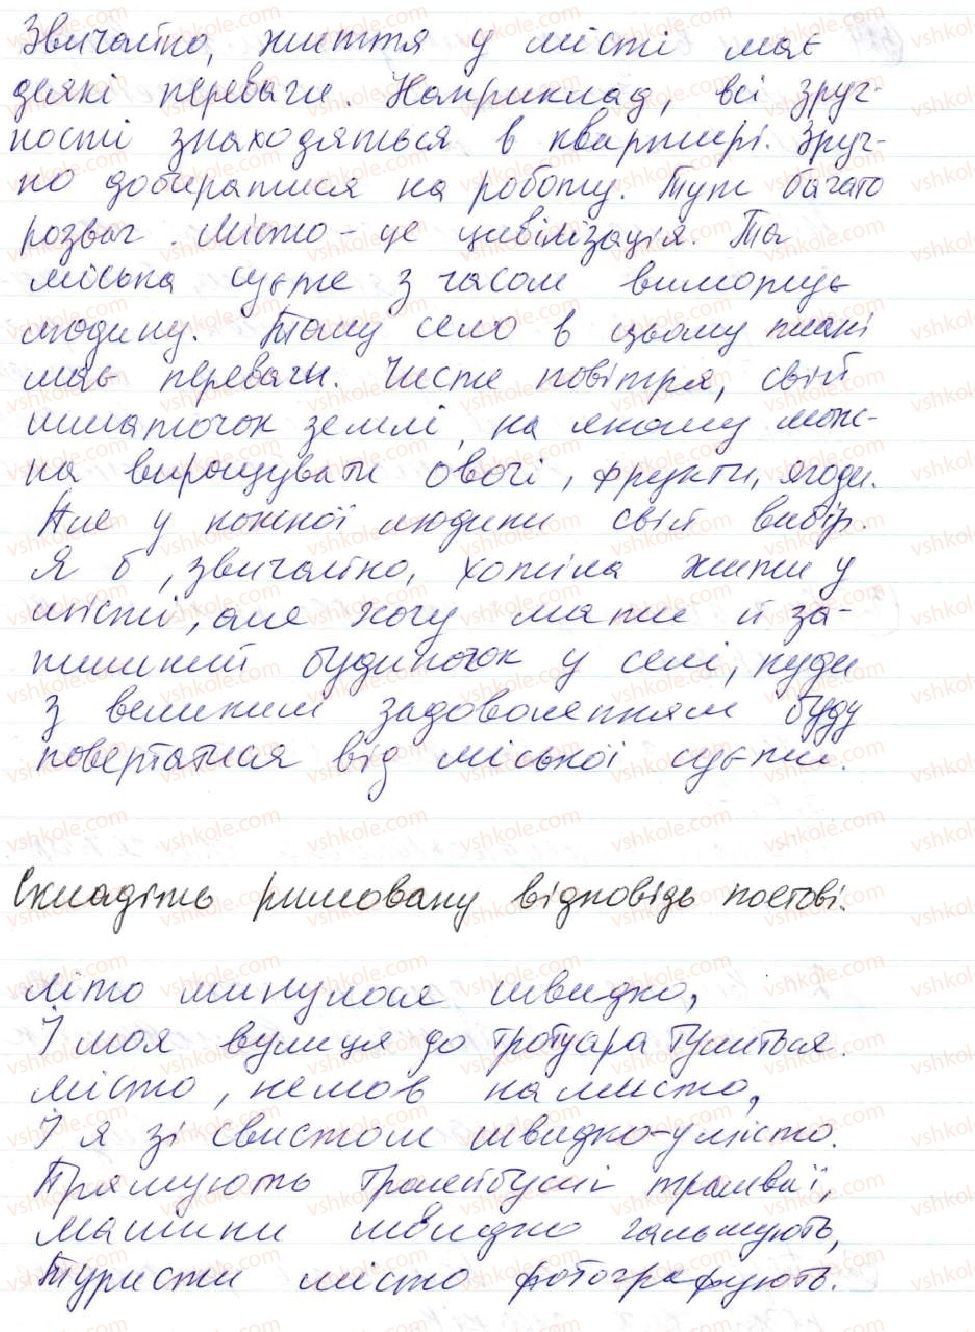 Звичайно, життя у місті має
деякі переваги. Наприклад, всі зруч-
ності знаходяться в квартирі. Зруч-
но добиратися на роботу. Тут багато
розваг. Місто - це цивілізація. Та
міська суєта з часом виморює
людину. Тому село в цьому плані
має переваги. Чисте повітря, свій
шматочок землі, на якому мож-
на вирощувати овочі, фрукти, ягоди.
Але у кожної людини свій вибір.
Я б, звичайно, хотіла жити у
місті, але хочу мати й за-
тишний будиночок у селі, куди
з великим задоволенням буду
повертатися від міської суєти.
Складіть римовану відповідь поетові.
Літо минулося швидко,
І моя вулиця до тротуара тулиться.
Місто, немов намисто,
І я зі свистом швидко - у місто.
Прямують тролейбуси і трамваї,
Машини швидко гальмують,
Туристи місто фотографують.